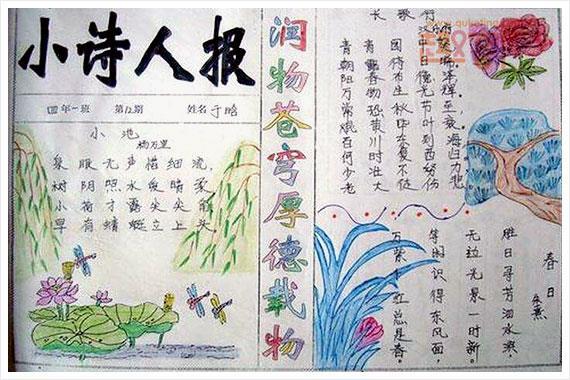 小诗人报
四年一班 第12期 姓名 于晗
小池
杨万里
泉眼无声惜细流,
树阴照水爱晴柔
小荷才露尖尖角
早有蜻蜓立上头。
润物苍穹厚德载物
长歌行
汉
青青园中葵,
朝露待日晞。
阳春布德泽,
万物生光辉。
常恐秋节至,
焜黄华叶衰。
百川东到海,
何时复西归
少壮不努力,
老大徒伤悲
春日
朱熹
胜日寻芳泗水滨,
无边光景一时新。
等闲识得东风面,
万紫千红总是春。